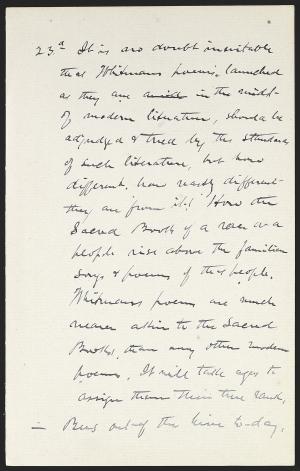 23d It is no doubt inevitable
that Whitmans poems, launched
as they are amid in the midst
of modern literature, should be
adjudged & tried by the standards
of such literature, but how
different, how vastly different
they are from it! How the
Sacred Books of a race or a
people rise above the familiar
songs & poems of that people.
Whitmans poems are much
nearer akin to the Sacred
Books, than any other modern
poems. It will take ages to
assign them their true rank.
— Bees out of the hive to-day.